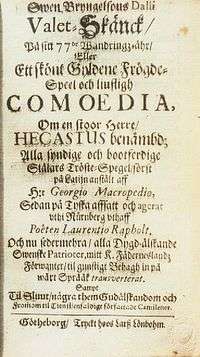 Swen Bryngelsons Dalii
Valet-Skänck/
På sitt 77de Wandringzåhr/
Eller
Ett skönt Gyldene Frögde-
Speel och liufligh
COMOEDIA,
Om en stoor Herre/
HECASTUS benåmbd;
Alla syndige och bootferdige
Siålars Tröste-Spegel först
på Latijn anstält aff
H:r Georgio Macropedio,
Sedan på Tyska affatt och agerat
uthi Nürnberg uthaff
Poëten Laurentio Rapholt,
Och nu sedermehra/ alla Dygd-älskande
Swenske Patrioter, mitt K. Fäderneslandz
Förwanter/ til gunstigt Behagh in på
wårt Språåk transverterat.
Sampt
Til Slutet/ några them Gudälskandom och
Frommom til Tienst författade
Götheborg/ Tryckt hoos Lars Lönbohm.